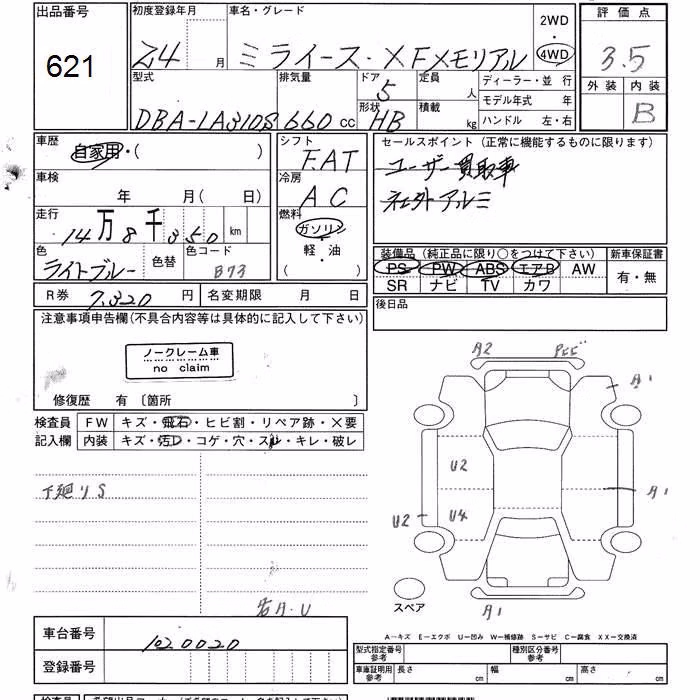 出品番号
621
初度登録年月
24 月
車名・グレード
ミライース・X Fメモリアル
2WD
・
4WD
評価点
3.5
外装 内装
B
型式
DBA-LA310S
排気量
660 cc
ドア
5
形状
HB
定員
人
積載
kg
ディーラー・並 行
モデル年式 年
ハンドル 左・右
車歴
自家用・( )
車検
年 月( 日)
走行
14万8千350 km
色
ライトブルー
色替
色コード
B73
シフト
F.AT
冷房
AC
燃料
ガソリン
・
軽・油
( )
セールスポイント (正常に機能するものに限ります)
ユーザー買取車
社外アルミ
装備品 (純正品に限り○をつけて下さい)
PS PW ABS エアB AW
SR ナビ TV カワ
新車保証書
有・無
後日品
R券 7,320 円
名変期限 月 日
注意事項申告欄(不具合内容等は具体的に記入して下さい)
ノークレーム車
no claim
修復歴 有 〔箇所 〕
検査員
記入欄
FW キズ・飛石・ヒビ割・リペア跡・×要
内装 キズ・汚レ・コゲ・穴・スレ・キレ・破レ
下廻りS
A2
A1
U2
U4
U2
A1
A1
スペア
A−キズ E−エクボ U−凹み W−補修跡 S−サビ C−腐食 XX−交換済
車台番号
1020020
登録番号
型式指定番号
参考
種別区分番号
参考
車庫証明用
参考
長さ cm
幅 cm
高さ cm